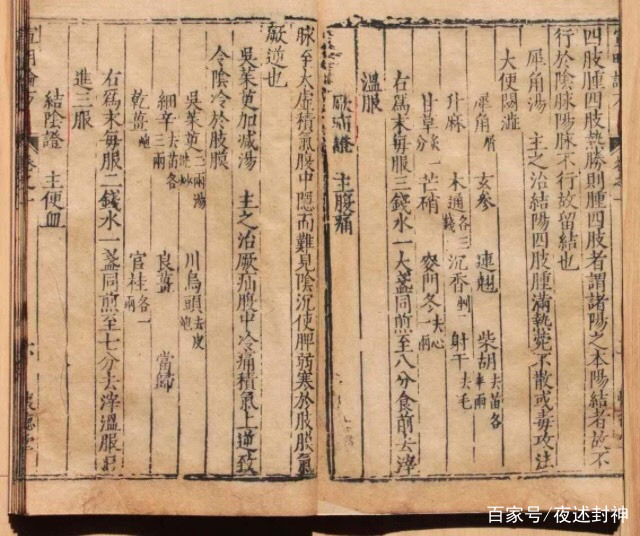 四肢腫四肢熱勝則腫四肢者謂諸陽之本陽結者故不
行於陰脉陽脉不行故留結也
犀角湯 主之治結陽四肢腫滿熱𣣔不散或毒攻注
大便閟澁
犀角屑 玄參 連翹 柴胡去苗各半兩
升麻 木通各三錢 沉香剉 射干去毛
甘草炙一分 芒硝 麥門冬去心一兩
右爲末每服三錢水一大盞同煎至八分食前去滓
溫服
厥疝證 主腹痛
脉至大虚積氣腹中隱而難見陰沉使脾弱寒於
厥逆也
吳茱萸加減湯 主之治厥疝腹中冷痛積氣上逆致
令陰冷於肢膜
吳茱萸二兩湯洗炒 川烏頭去皮炮
細辛去苗各三兩 良薑 當歸
乾薑炮 官桂各一兩
右爲末每服二錢水一盞同煎至七分去滓溫服日
進三服
結陰證 主便血
百家号/夜述封神